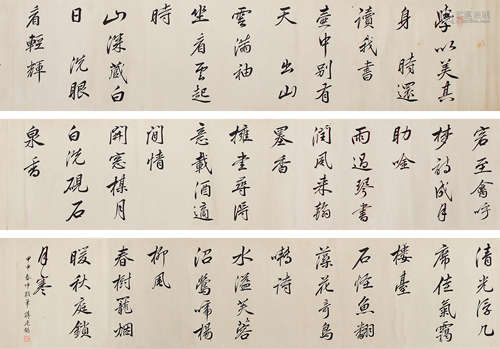 學以美其
身時還
讀我書
壺中別有
天出山
雲滿袖
坐看雲起
時
山深藏白
日洗眼
看輕輝
客至禽呼
夢詩成月
助吟
雨過琴書
潤風來翰
墨香
擁書尋得
意載酒適
閒情
開窓模月
白洗硯石
泉香
清光浮几
席佳氣靄
樓臺
石怪魚翻
藻花奇鳥
詩
水溢芙蓉
沼鶯啼楊
柳風
春樹籠烟
暖秋庭鎖
月寒
甲申春仲 蔣廷錫